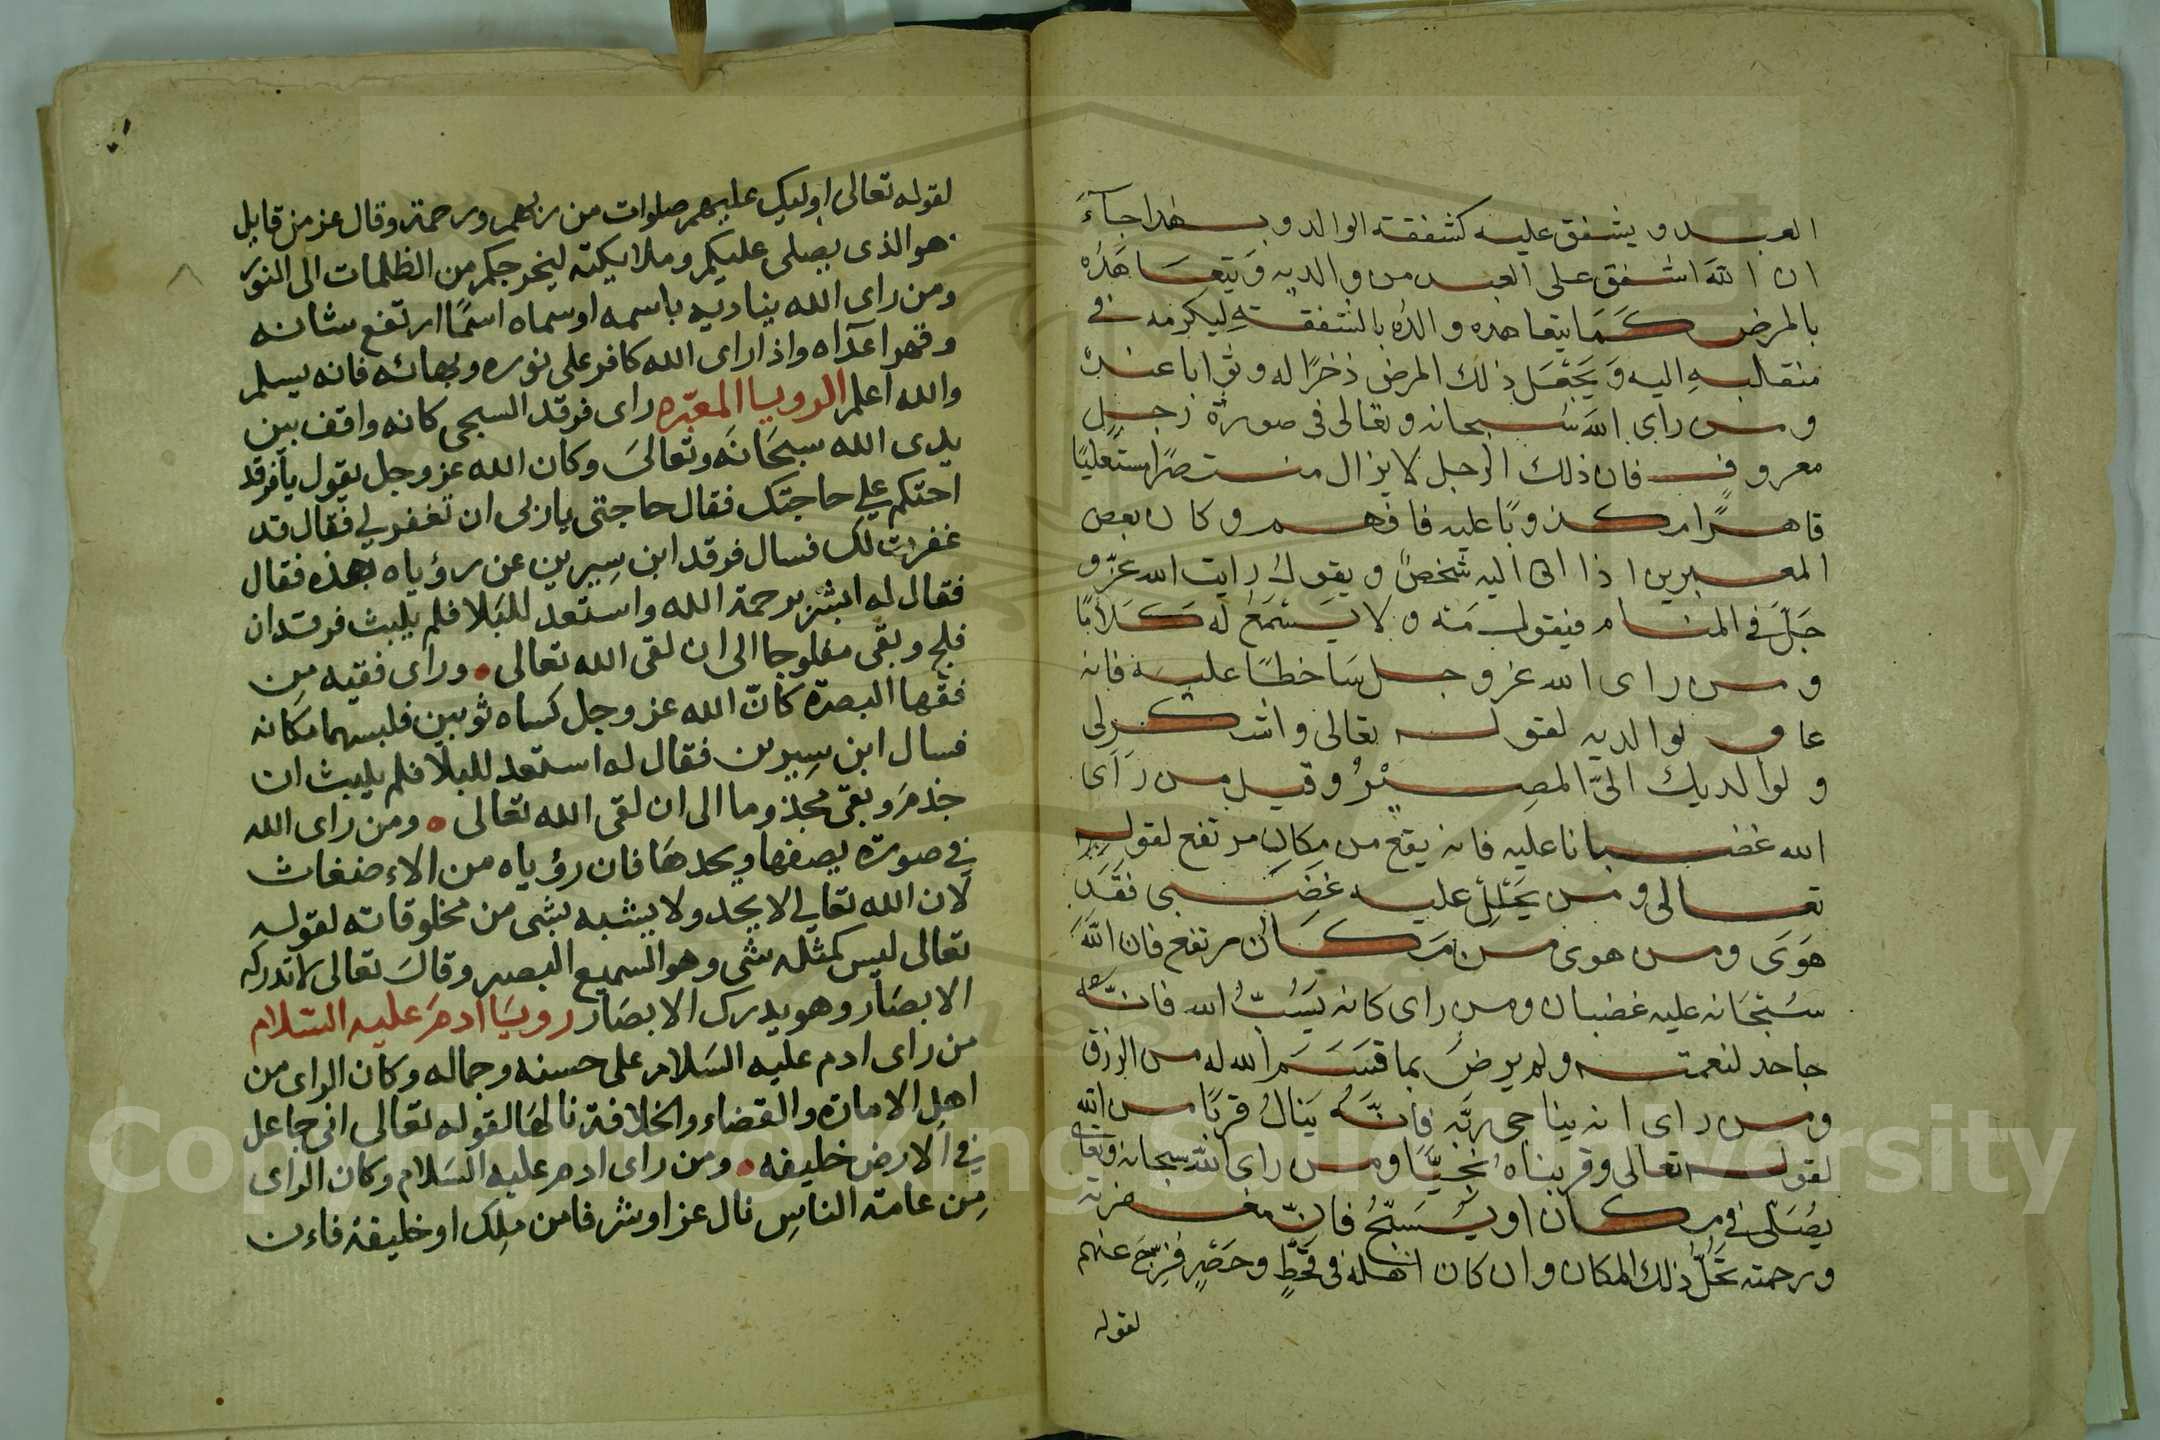 العبد ويشفق عليه كشفقة الوالد وبهذا جآءَ
ان اللهَ اشفق على العبد من والديه وَيتعاهَدُه
بالمرض كَمَا يتعاهده والدُه بالشفقةِ ليكرمه في
منقلبهِ اليه وَيَجْعَل ذلك المرض ذخرًا له وثوابا عندهُ
ومن راى الله سُبحانه وتعالى فى صورة رَجل
معروف فان ذلك الرجل لا يزال منتصرًا مستَعليًا
قاهرًا مكذوبًا عليه فافهم وكان بعض
المعبرين اذا اتى اليه شخصٌ ويقول رايت الله عزّ و
جَلّ في المنام فيقول مَه ولا يَستَمعُ له كَلامًا
ومن راى الله عز وجل سَاخطًا عليه فانه
عاق لوالديه لقوله تعالى واشكر لى
ولوالديك اليّ المصِيْرُ وقيل من رَآى
الله غضبانا عليه فانه يقع من مكانٍ مرتفع لقوله
تعالى ومن يَحْلِلْ عليه غضَبى فقَدْ
هَوَى ومن هوى من مَكَان مرتفع فان اللهَ
سُبْحَانه عليه غضبان ومن راى كانه يَسُبّ الله فانّه
جاحد لنعمته ولم يرضَ بما قسَمَ الله له من الرزق
ومن راى انه يناجى ربّه فانّهُ يَنالُ قربًا من الله
لقوله تعالى وقربناه نجيّا ومن راى الله سبحانه وتعالى
يُصَلّى في مكان او يُسَبّحُ فانّ مغفرته
ورحمته تحُلّ ذلك المكان وان كان اهله فى قحْطٍ وحصْرٍ فُرّجَ عنهم
لقوله
لقوله تعالى اوليك عليهم صلوات من ربهم ورحمة وقال عز من قايل
هو الذى يصلى عليكم وملايكته ليخرجكم من الظلمات الى النور
ومن راى الله يناديه باسمه او سماه اسمًا ارتفع شانه
وقهر اعدآه واذا راى الله كافر على نوره وبهائه فانه يسلم
والله اعلم الرويا المعبّره راى فرقد السبجى كانه واقف بين
يدى الله سبحَانَه وتعالىَ وكان الله عز وجل يقول يا فرقد
احتكم علي حاجتك فقال حاجتى يا ربى ان تغفر لي فقال قد
غفرت لك فسال فرقد ابن سِيرين عن رؤياه بهذه فقال
فقال له ابشر برحمة الله واستعد للبَلا فلم يلبث فرقد ان
فلج وبقى مفلوجا الى ان لقى الله تعالى وراى فقيه مِن
فقها البصرة كانّ الله عز وجل كساه ثوبين فلبسهما مكانه
فسال ابن سِيرين فقال له استعد للبلا فلم يلبث ان
جذمَ وبقى مجذوما الى ان لقى الله تعالى ومن راى الله
في صورة يصفها ويحدهَا فان رؤياه من الاءضغاث
لان الله تعالي لا يحد ولا يشبه بشى من مخلوقاته لقوله
تعالى ليس كمثله شى وهو السميع البصير وقالَ تعالى لا تدركه
الابصَار وهو يدرك الابصَار رويَا ادمَ عليه السّلام
من راى ادم عليه السَلام على حسنه وجماله وكان الراى من
اهلِ الامارة والقضاء والخلافة نالهَا لقوله تعالى انى جاعل
في الارض خليفه ومن راى ادم عليه السَلام وكان الراى
مِن عامة الناسِ نال عزا وشرفا من ملِك او خليفة فاءن
Copyright © King Saud University